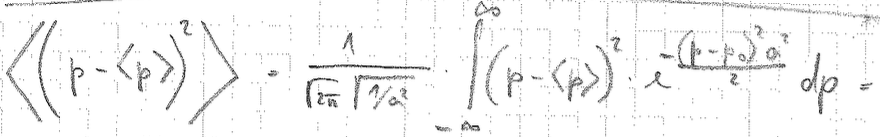 ⟨(p - ⟨p⟩)²⟩ = \frac{1}{\sqrt{2π} \sqrt{1/a²}} · \int_{-∞}^{∞} (p - ⟨p⟩)² · e^{-\frac{(p - p₀)² a²}{2}} dp =